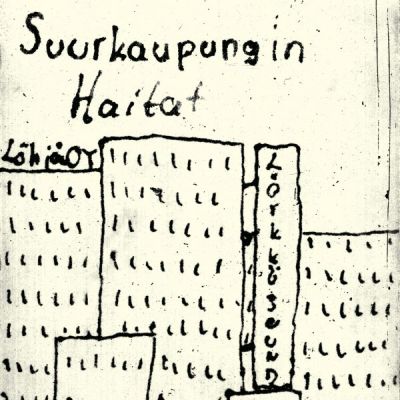 Suurkaupungin
Haitat
Löhjä OY